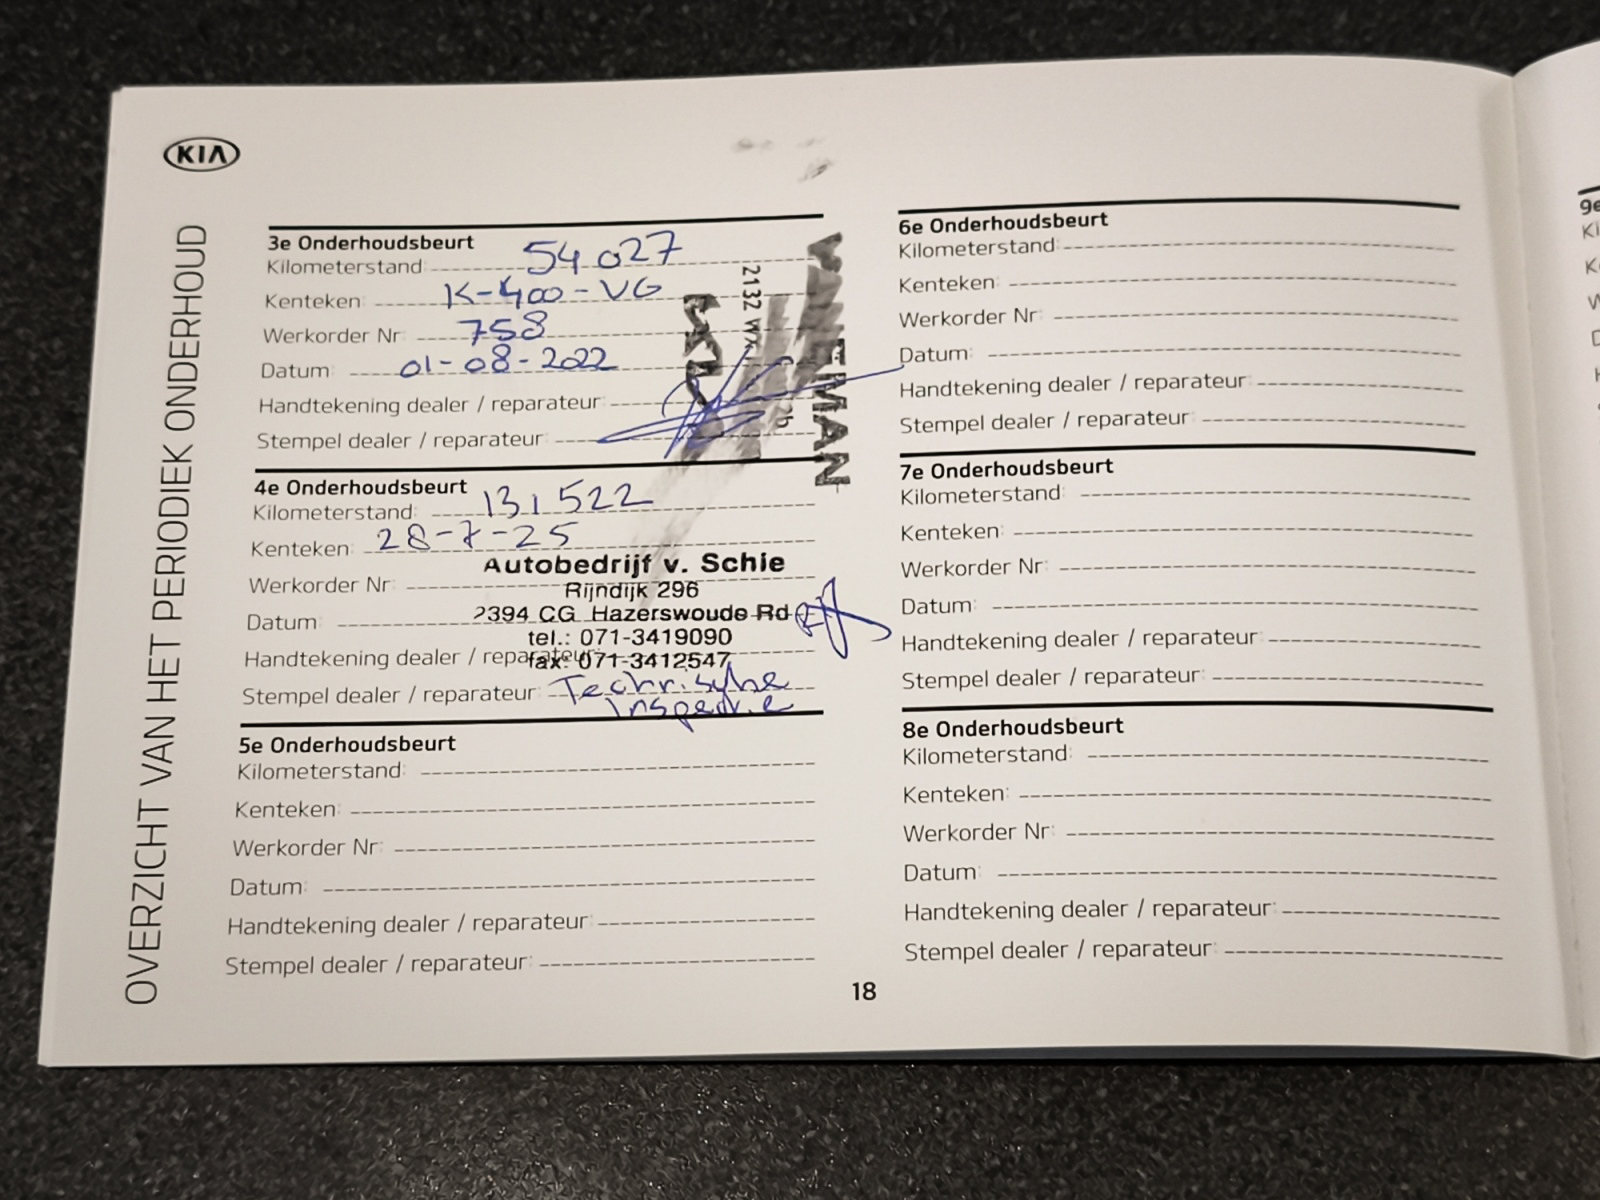 KIA
OVERZICHT VAN HET PERIODIEK ONDERHOUD
3e Onderhoudsbeurt
Kilometerstand: 54.027
Kenteken: K-400-VG
Werkorder Nr: 758
Datum: 01-08-2022
Handtekening dealer / reparateur:
Stempel dealer / reparateur:
2132 WX
KIA
4e Onderhoudsbeurt
Kilometerstand: 131522
Kenteken: 28-7-25
Werkorder Nr:
Datum:
Handtekening dealer / reparateur:
Stempel dealer / reparateur: Technische
Inspectie
Autobedrijf v. Schie
Rijndijk 296
2394 CG Hazerswoude Rd
tel.: 071-3419090
fax: 071-3412547
5e Onderhoudsbeurt
Kilometerstand:
Kenteken:
Werkorder Nr:
Datum:
Handtekening dealer / reparateur:
Stempel dealer / reparateur:
6e Onderhoudsbeurt
Kilometerstand:
Kenteken:
Werkorder Nr:
Datum:
Handtekening dealer / reparateur:
Stempel dealer / reparateur:
7e Onderhoudsbeurt
Kilometerstand:
Kenteken:
Werkorder Nr:
Datum:
Handtekening dealer / reparateur:
Stempel dealer / reparateur:
8e Onderhoudsbeurt
Kilometerstand:
Kenteken:
Werkorder Nr:
Datum:
Handtekening dealer / reparateur:
Stempel dealer / reparateur:
18
9e